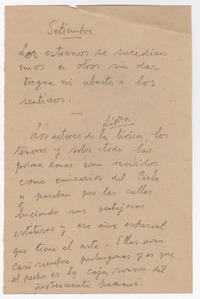 Setiembre
Los estrenos se sucedian
unos a otros sin dar
tregua ni abasto a los
sentidos.
Lírica
Los actores de la lírica, los
tenores y sobre todo las
prima donas eran recibidos
como emisarios del Cielo
y paseaban por las calles
luciendo sus ventajosas
estaturas y ese aire especial
que tiene el arte. Ellas eran
casi siempre pechugonas y es que
el pecho es la caja sonora del
instrumento humano.